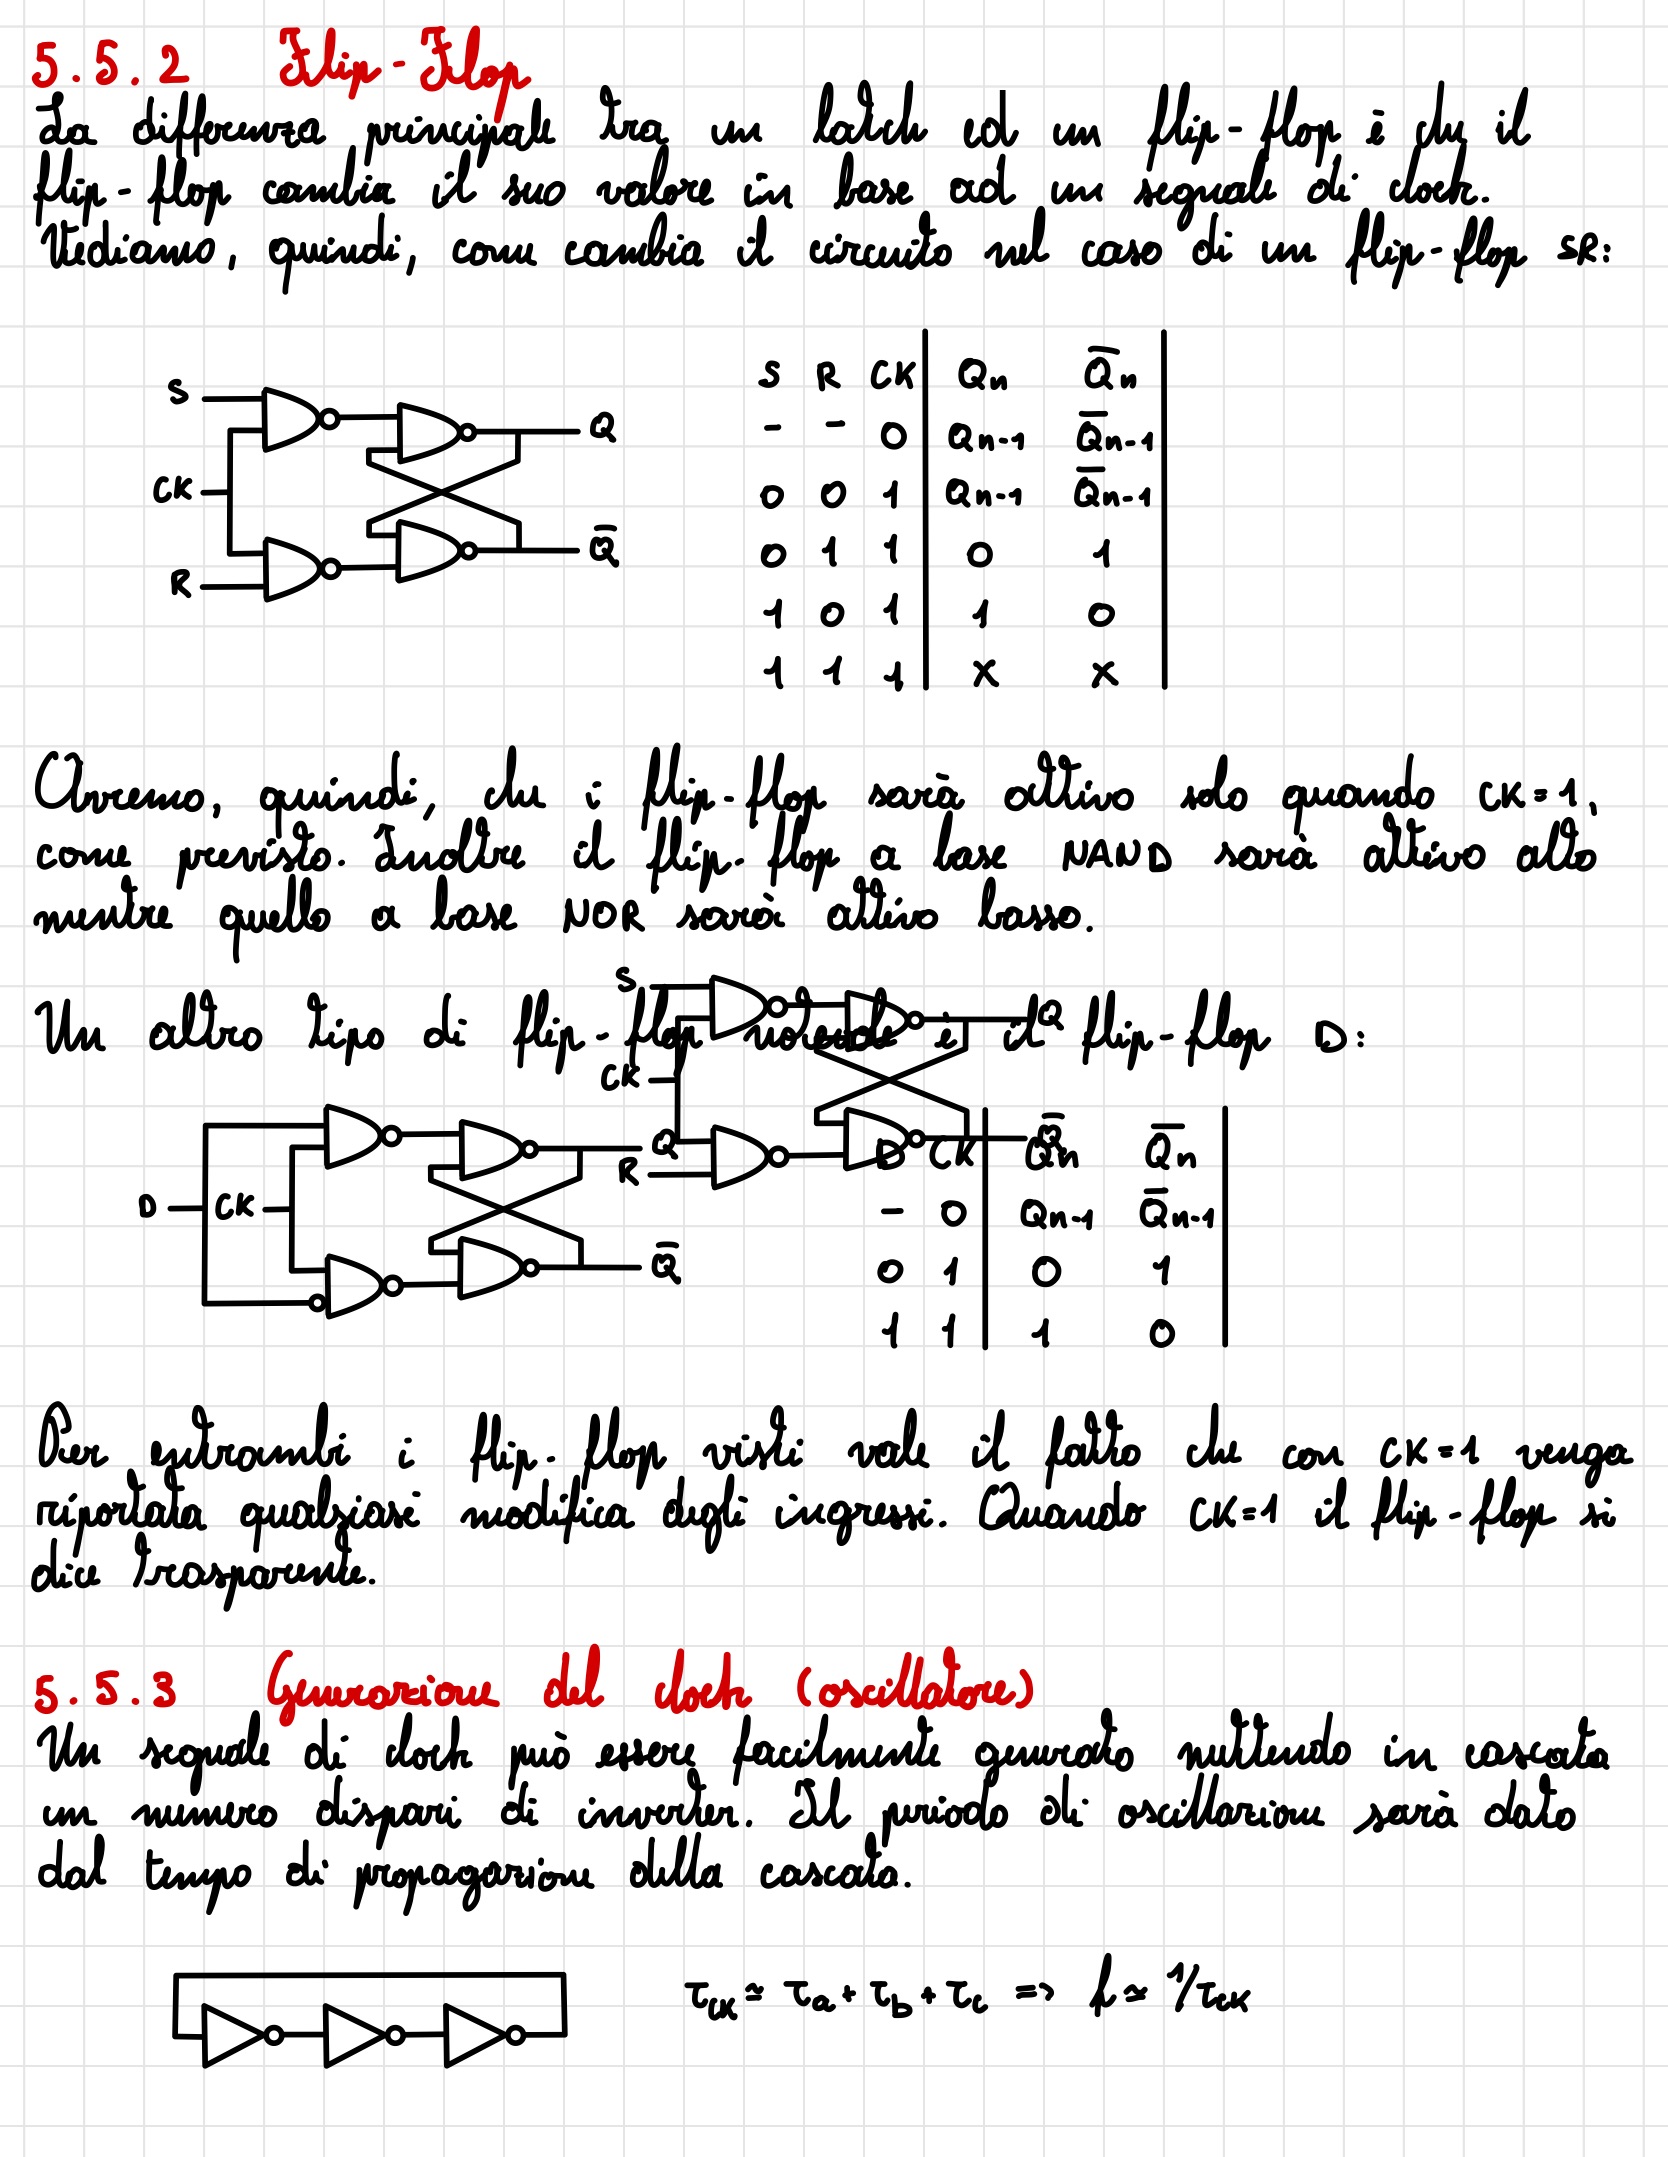 5.5.2 Flip-Flop
La differenza principale tra un latch ed un flip-flop è che il
flip-flop cambia il suo valore in base ad un segnale di clock.
Vediamo, quindi, come cambia il circuito nel caso di un flip-flop SR:
S R CK Qn Q̅n
S
- - 0 Qn-1 Q̅n-1
Q
CK
0 0 1 Qn-1 Q̅n-1
0 1 1 0 1
Q̅
R
1 0 1 1 0
1 1 1 X X
Avremo, quindi, che i flip-flop sarà attivo solo quando CK=1,
come previsto. Inoltre il flip-flop a base NAND sarà attivo alto
mentre quello a base NOR sarà attivo basso.
S
Un altro tipo di flip-flop notevole è il flip-flop D:
Q
CK
Q
Q̅
R
D CK Qn Q̅n
D CK
- 0 Qn-1 Q̅n-1
Q̅
0 1 0 1
1 1 1 0
Per entrambi i flip-flop visti vale il fatto che con CK=1 venga
riportata qualsiasi modifica degli ingressi. Quando CK=1 il flip-flop si
dice trasparente.
5.5.3 Generazione del clock (oscillatore)
Un segnale di clock può essere facilmente generato mettendo in cascata
un numero dispari di inverter. Il periodo di oscillazione sarà dato
dal tempo di propagazione della cascata.
τCK ≃ τa + τb + τc => f ≃ 1/τCK